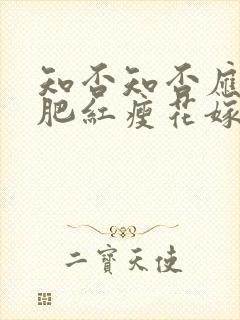 知否知否應
肥紅瘦花嫁
二寶天使